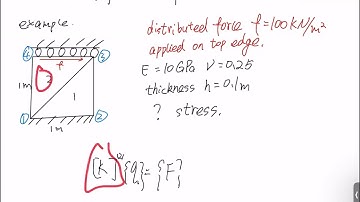 example.
distributed force f=100kN/m²
applied on top edge.
④ ③
f
E=10GPa ν=0.25
1m 2 1
thickness h=0.1m
? stress.
① ②
1m
[K]⁽²⁾{q}={F}